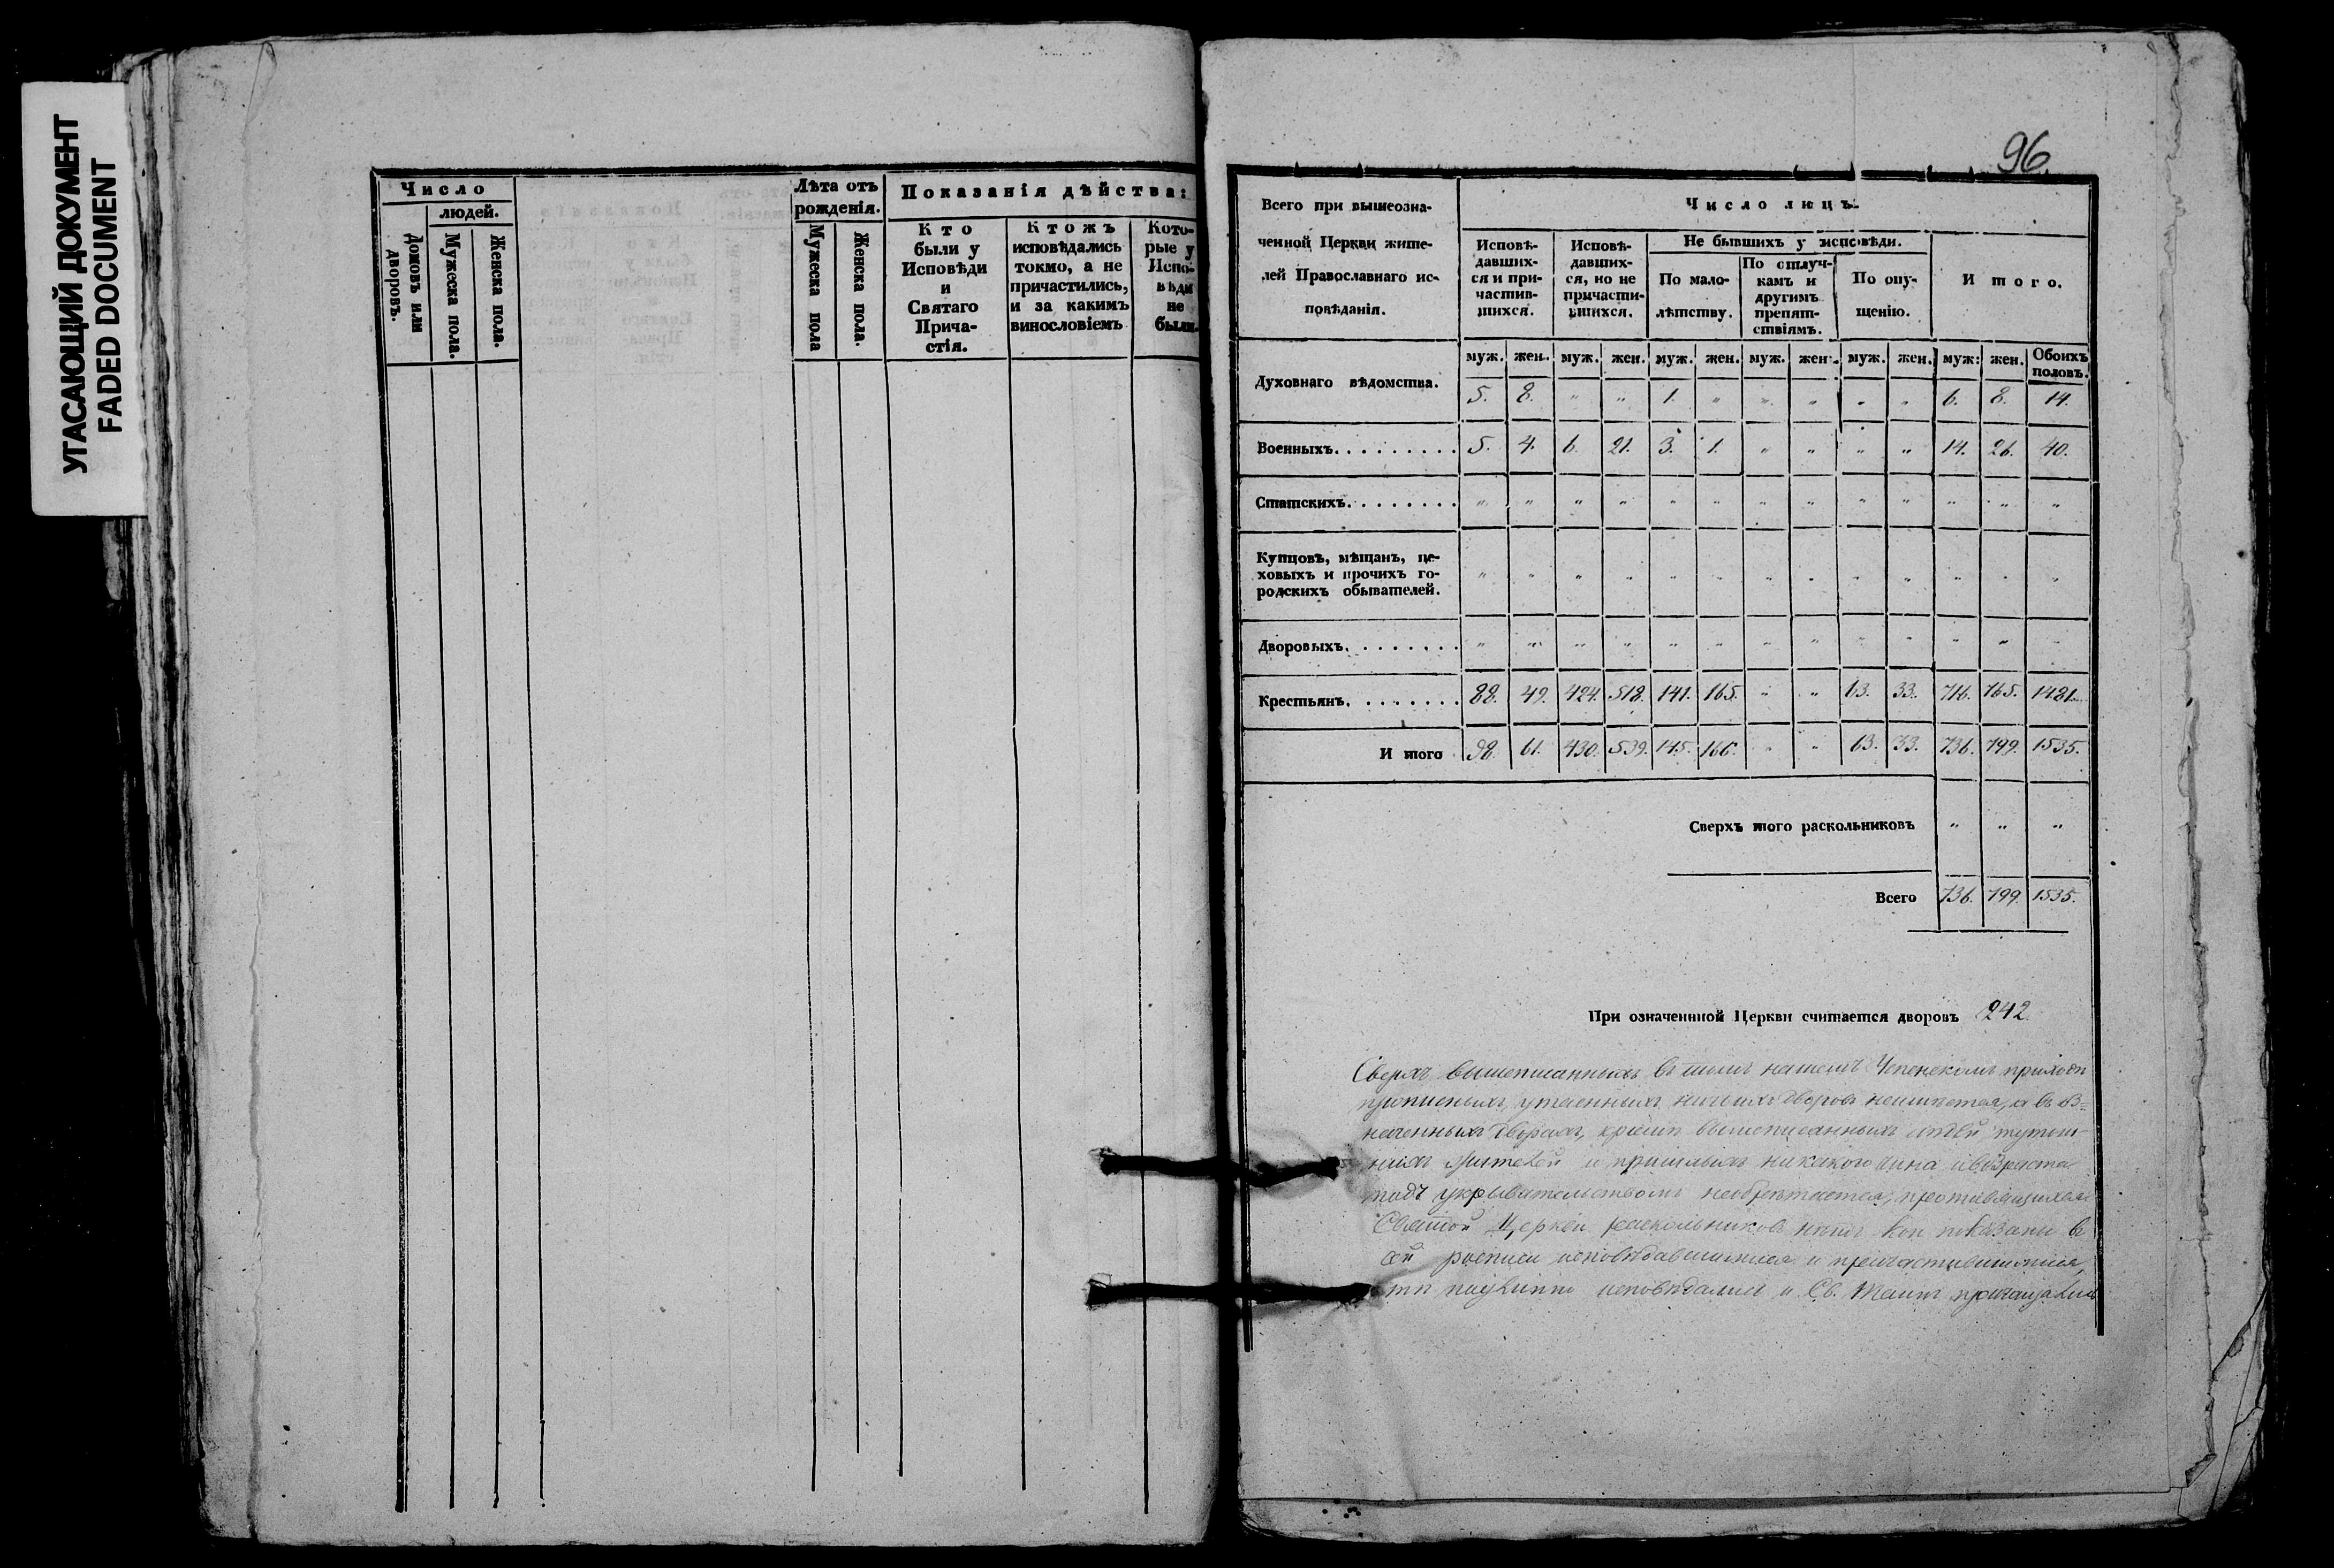 УГАСАЮЩИЙ ДОКУМЕНТ
FADED DOCUMENT
Число
людей.
Домовъ или дворовъ.
Мужеска пола.
Женска пола.
Лѣта отъ
рожденія.
Мужеска пола
Женска пола.
Показанія дѣйства:
Кто
были у
Исповѣди
и
Святаго
Прича-
стія.
Ктожъ
исповѣдались
токмо, а не
причастились,
и за какимъ
винословіемъ
Кото-
рые у
Испо-
вѣди
не
были.
96.
Всего при вышеозна-
ченной Церкви жите-
лей Православнаго ис-
повѣданія.
Число лицъ.
Исповѣ-
давших-
ся и при-
частив-
шихся.
Исповѣ-
давших-
ся, но не
причасти-
вшихся.
Не бывшихъ у исповѣди.
По мало-
лѣтству.
По отлуч-
камъ и
другимъ
препят-
ствіямъ.
По опу-
щенію.
И того.
муж. жен. муж. жен. муж. жен. муж. жен. муж. жен. муж: жен. Обоихъ половъ.
Духовнаго вѣдомства. 5. 8. " " 1. " " " " " 6. 8. 14.
Военныхъ......... 5. 4. 6. 21. 3. 1. " " " " 14. 26. 40.
Статскихъ........ " " " " " " " " " " " " "
Купцовъ, мѣщанъ, це-
ховыхъ и прочихъ го-
родскихъ обывателей. " " " " " " " " " " " " "
Дворовыхъ........ " " " " " " " " " " " " "
Крестьянъ........ 88. 49. 424. 518. 141. 165. " " 63. 33. 716. 765. 1481.
И того 98. 61. 430. 539. 145. 166. " " 63. 33. 736. 799. 1535.
Сверхъ того раскольниковъ " " "
Всего 736. 799. 1535.
При означеннной Церкви считается дворовъ 242
Сверхъ вышеписанныхъ въ нашемъ приходѣ
утаенныхъ дворовъ
дворахъ, кромѣ вышеписанныхъ людей
жителей и пришлыхъ никакого чина и возраста
подъ укрывательствомъ необрѣтается,
Святой Церкви раскольниковъ нѣтъ кои показаны въ
сей росписи исповѣдавшимися и причастившимися,
исповѣдались и Св. Таинъ